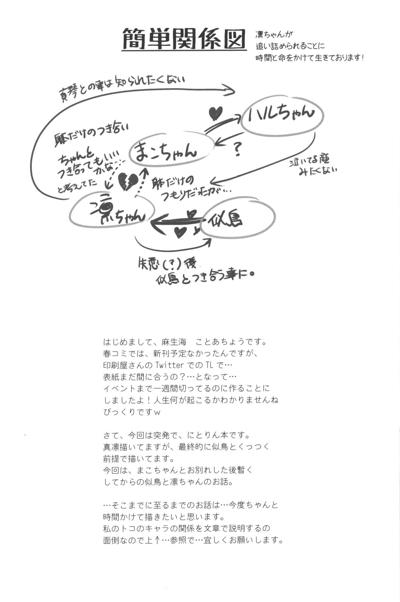 簡単関係図
凛ちゃんが
追い詰められることに
時間と命をかけて生きております!
真琴との事は知られたくない
ハルちゃん
体だけのつき合い
まこちゃん
ちゃんと
つき合てもいい
かな…
と考えてた
?
泣いてる所
みたくない
体だけの
つもりだったが…
凛ちゃん
似鳥
失恋(?)後
似鳥とつき合う事に。
はじめまして、麻生海 ことあちょうです。
春コミでは、新刊予定なかったんですが、
印刷屋さんのTwitterでのTLで…
表紙まだ間に合うの?…となって…
イベントまで一週間切ってるのに作ることに
しましたよ!人生何が起こるかわかりませんね
びっくりですw
さて、今回は突発で、にとりん本です。
真凛描いてますが、最終的に似鳥とくっつく
前提で描いてます。
今回は、まこちゃんとお別れした後暫く
してからの似鳥と凛ちゃんのお話。
…そこまでに至るまでのお話は…今度ちゃんと
時間かけて描きたいと思います。
私のトコのキャラの関係を文章で説明するの
面倒なので上↑…参照で…宜しくお願いします。